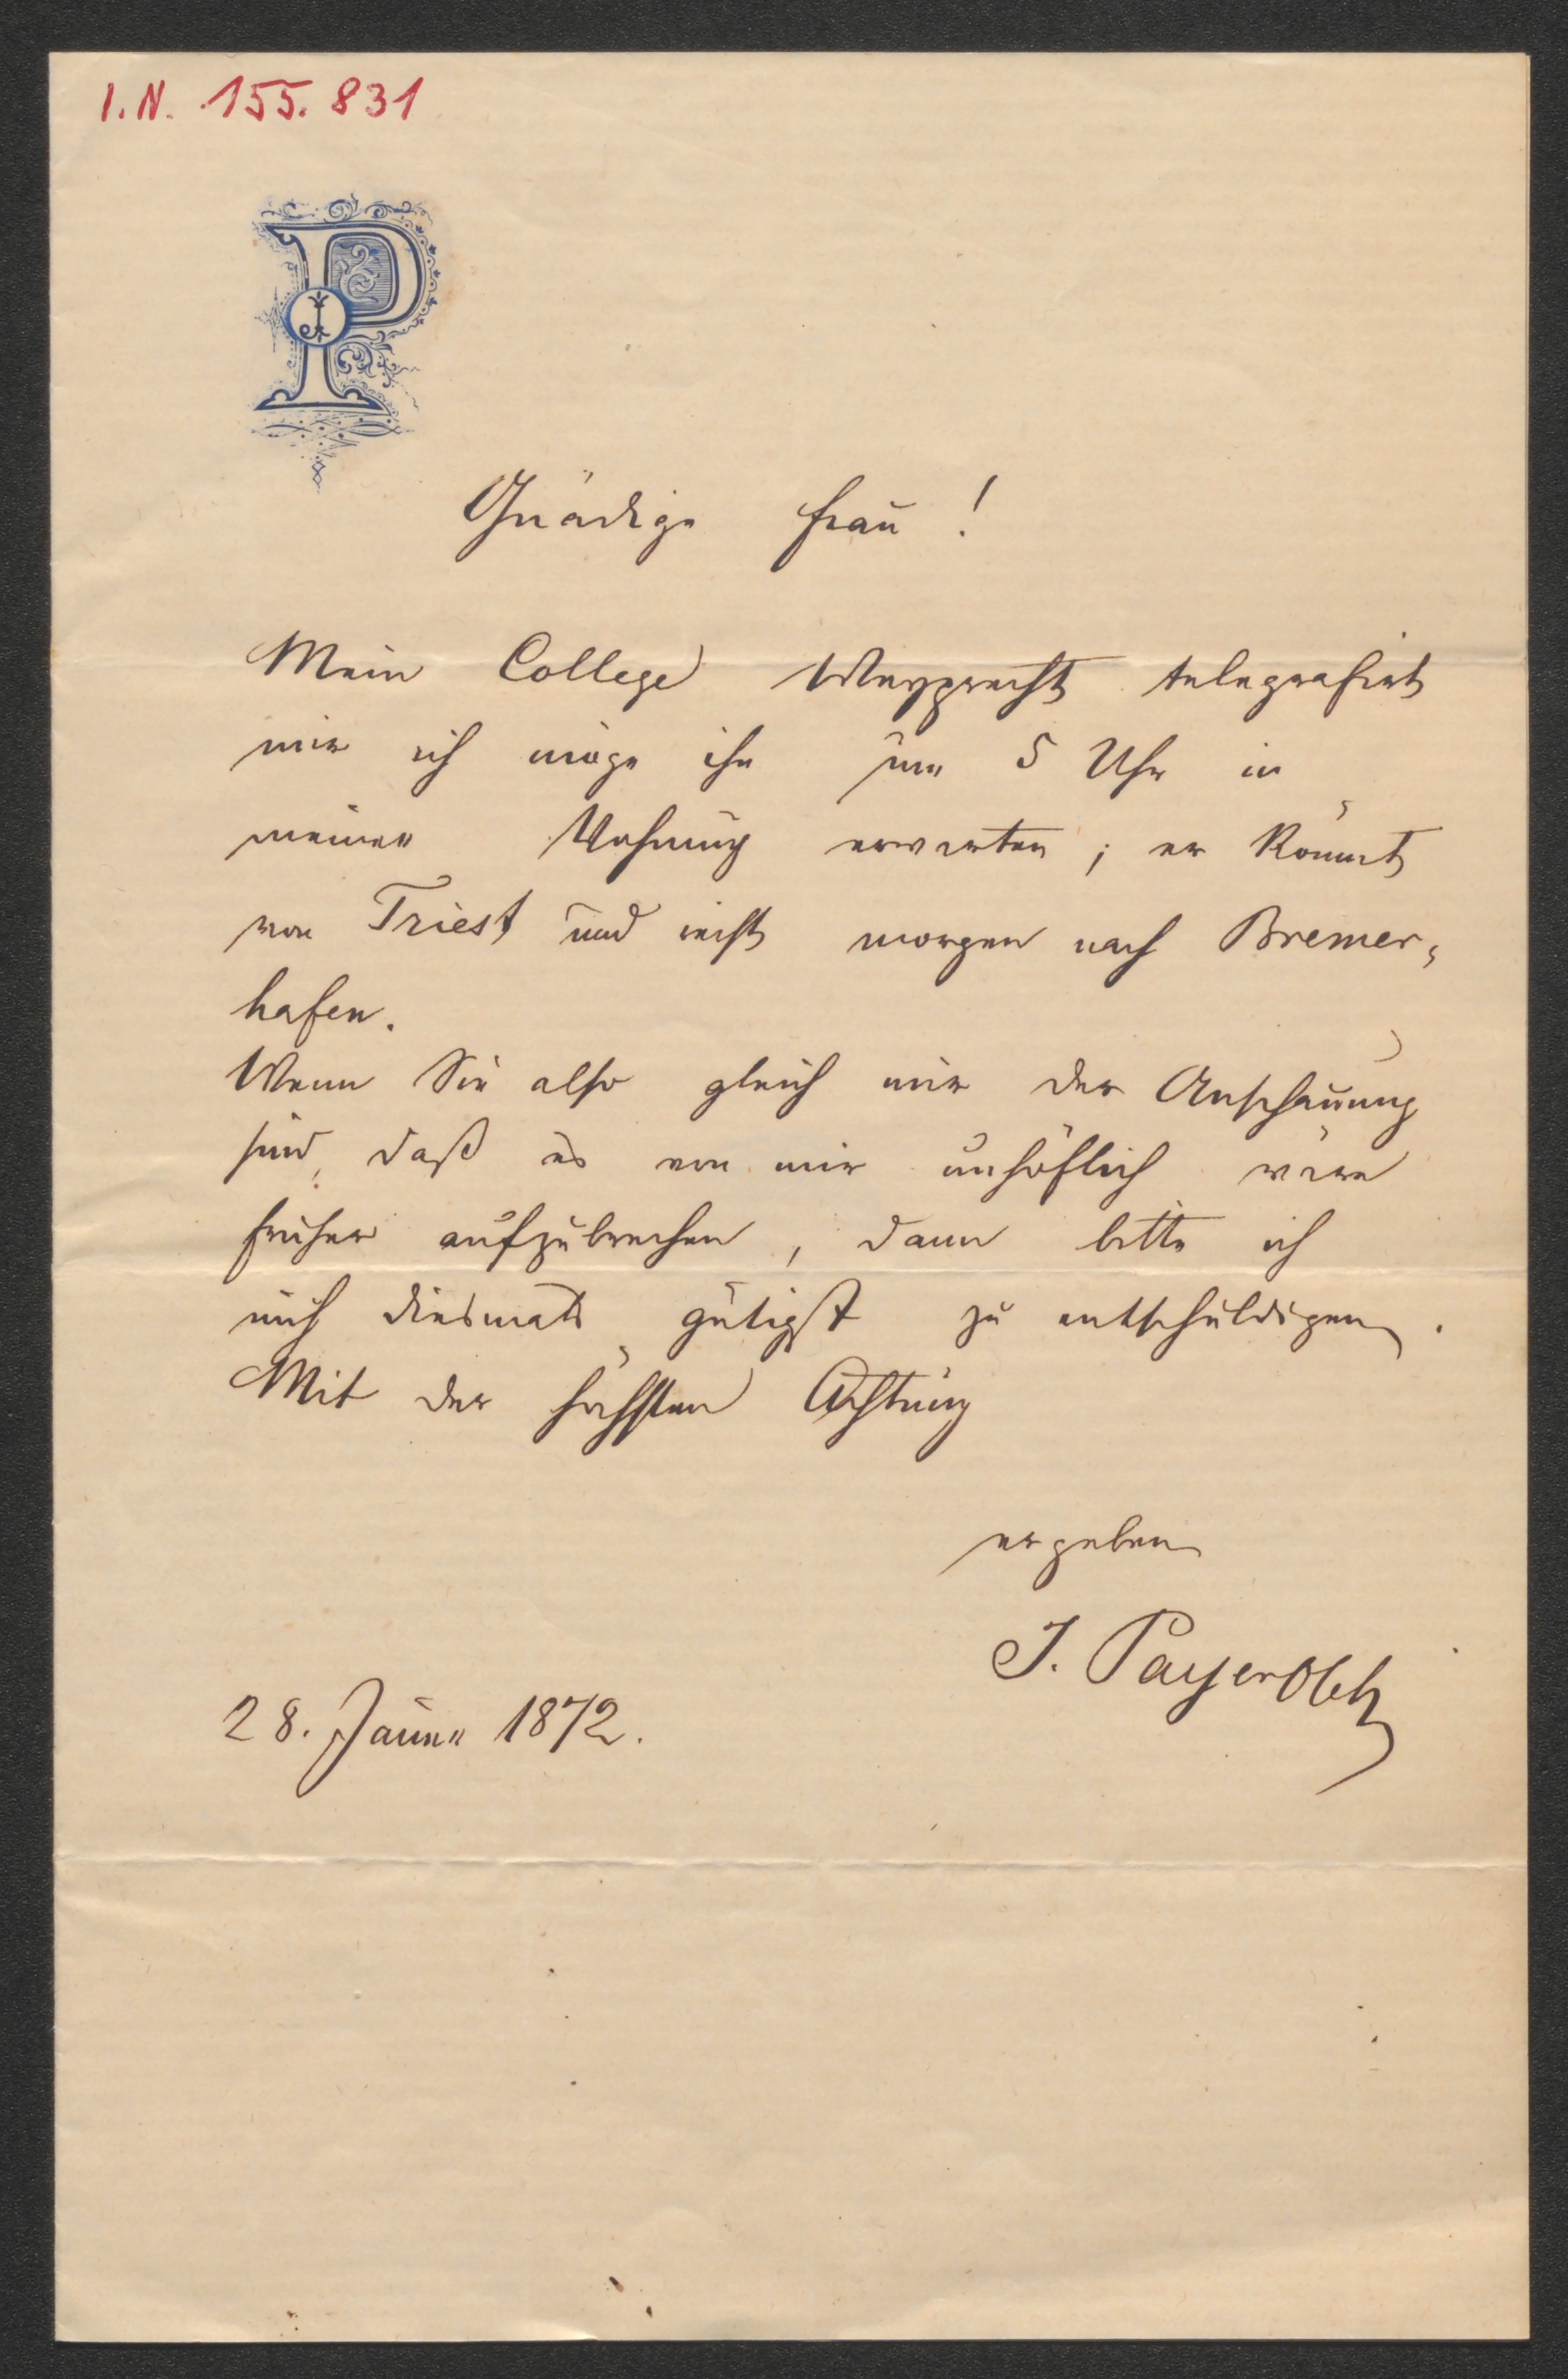 I.N. 155.831
P
J
Gnädige Frau!
Mein College Weyprecht telegrafirt
mir ich möge ihn um 5 Uhr in
meiner Wohnung erwarten; er kommt
von Triest und reist morgen nach Bremer-
hafen.
Wenn Sie also gleich mir der Anschauung
sind, daß es von mir unhöflich wäre
früher aufzubrechen, dann bitte ich
mich diesmals gütigst zu entschuldigen.
Mit der höchsten Achtung
ergeben
J. Payer
28. Jänner 1872.